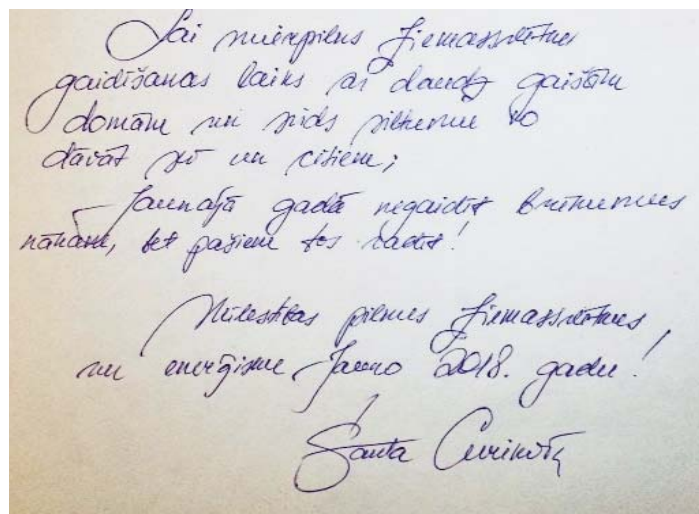 Lai mierpilns Ziemassvētku
gaidīšanas laiks ar daudz gaišām
domām un sirds siltumu to
dāvāt un citiem;
Jaunajā gadā negaidīt brīnumus
nākam, bet pašiem tos radīt!
Mīlestības pilnus Ziemassvētkus
un enerģisku Jauno 2018. gadu!
Santa